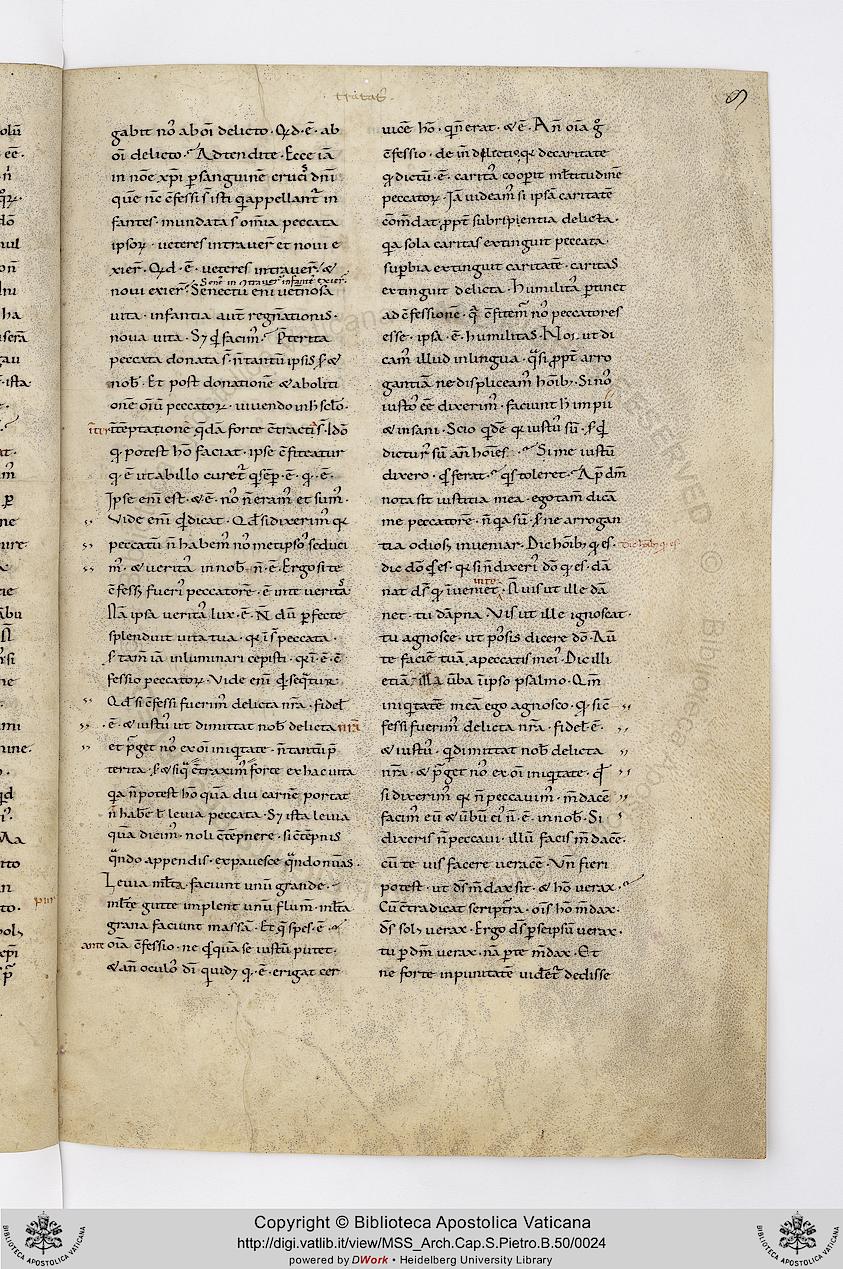 tractat
9
gabit nō ab oī delicto · Qd · ē · ab
oī delicto · Adtendite · Ecce iā
in noē xp̄i p sanguinē crucis dn̄i
quē nc̄ cfessi s̄ isti q appellant̄ in
fantes · mundata s̄ omīa peccata
ipsoꝝ · ueteres intraueŕ et noui e
xieŕ · Qd · ē · ueteres intraueŕ · &
noui exieŕ · Senectū enī uetnosa
uita · infantia aut regn̄ationis ·
noua uita · Sꝫ qd facim̄ · Pterita
peccata donata s̄ · n̄ tantū ipsis s; &
nob̄ · Et post donationē & aboliti
onē oīuꝫ peccatoꝝ · uiuendo in h̄ sclo ·
īter tēptationes q̄dā forte c̄tracta s̄ · Ido
q potest hō faciat · ipse c̄fiteatur
q · ē · ut ab illo curet̄ q sēp · ē · q · ē ·
Ipse enī est · & ē · nō n̄ eram̄ et sum̄ ·
Vide enī qd dicat · Qd si dixerim̄ qr
peccatū n̄ habem̄ nō metipsos seduci
m̄ · & uerita in nob̄ · n̄ · ē · Ergo si te
c̄fessū fueris peccatorē · ē · in te uerita
Nā ipsa uerita lux · ē · N̄ dū pfecte
splenduit uita tua · qr is̄ peccata ·
s; tam̄ iā inluminari cepisti · qr ī · ē · c̄
fessio peccatoꝝ · Vide enī qd seqt̄ur
Qd si c̄fessi fuerim̄ delicta nr̄a · fidel̄
· ē · & iustus ut dimittat nob̄ delicta nr̄a
et pget nō ex oī iniqtate · n̄ tantū p
terita · s; & siq c̄traxim̄ forte ex hac uita
qa n̄ potest hō quā diu carnē portat
n̄ habē ł leuia peccata · Sꝫ ista leuia
quā dicim̄ · noli c̄tēpnere · si c̄tēpnis
qndo appendis · expauesce qndo num̄as ·
Leuia ml̄ta · faciunt unū grande ·
ml̄te gutte implent unū flum̄ · ml̄ta
grana faciunt massā · Et q spes · ē ·
ante oīa c̄fessio · ne qsquā se iustū putet ·
& an̄ oculos dī quidꝫ q · ē · erigat cer
uicē hō · qn̄ erat · & ē · An̄ oīa g
c̄fessio · de in̄ dilectio · qr de caritate
q dictū · ē · caritas coopit ml̄titudinē
peccatoꝝ · Iā uideam̄ si ipsā caritatē
cōm̄dat · ppt subripientia delicta ·
qa sola caritas extinguit peccata ·
supbia extinguit caritatē · caritas
extinguit delicta · humilitas ptinet
ad c̄fessionē · q c̄fitem̄ nō peccatores
esse · ipsa · ē · humilitas · Nō ut di
cam̄ illud in lingua · qsi ppt arro
gantiā ne displiceam̄ hoīb · Si nō
iustos eē dixerim̄ · faciunt h̄ impii
& insani · Scio qdē qr iustū sū · s; qd
dicturus sū an̄ hoīes · Si me iustū
dixero · qs ferat · qs toleret · Ap dm̄
nota sit iustitia mea · ego tam̄ dicā
me peccatorē · n̄ qa sū · s; ne arrogan
tia odiosus inueniar · Dic hoīb q es · dic hoīb q es
dic dō q es · qr si n̄ dixeris dō q es · dā
nat ds̄ q in te inueniet · N̄ uis ut ille dā
net · tu dāpna · Vis ut ille ignoscat ·
tu agnosce · ut possis dicere dō · Au
te faciē tuā a peccatis meis · Dic illi
etiā illa uba in ipso psalmo · Qm̄
iniqtatē meā ego agnosco · qd si c̄
fessi fuerim̄ delicta nr̄a · fidel̄ · ē ·
& iustus · q dimittat nob̄ delicta
nr̄a · & pget nō ex oī iniqtate · qd
si dixerim̄ qr n̄ peccauim̄ · m̄dacē
facim̄ eū & ubū ei n̄ · ē · in nob̄ · Si
dixeris n̄ peccaui · illū facis m̄dacē ·
cū te uis facere ueracē · Vn̄ fieri
potest · ut ds̄ m̄dax sit · & hō uerax ·
Cū c̄tradicat scriptra · oīs hō m̄dax ·
ds̄ solus uerax · Ergo ds̄ p se ipsū uerax ·
tu p dm̄ uerax · nā p te m̄dax · Et
ne forte inpunitatē uidet̄ dedisse
Copyright © Biblioteca Apostolica Vaticana
http://digi.vatlib.it/view/MSS_Arch.Cap.S.Pietro.B.50/0024
powered by DWork • Heidelberg University Library